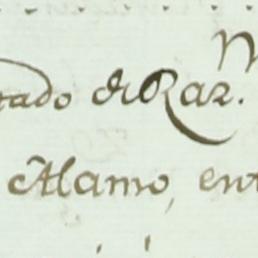 tado de Raz.
Alamo, ent